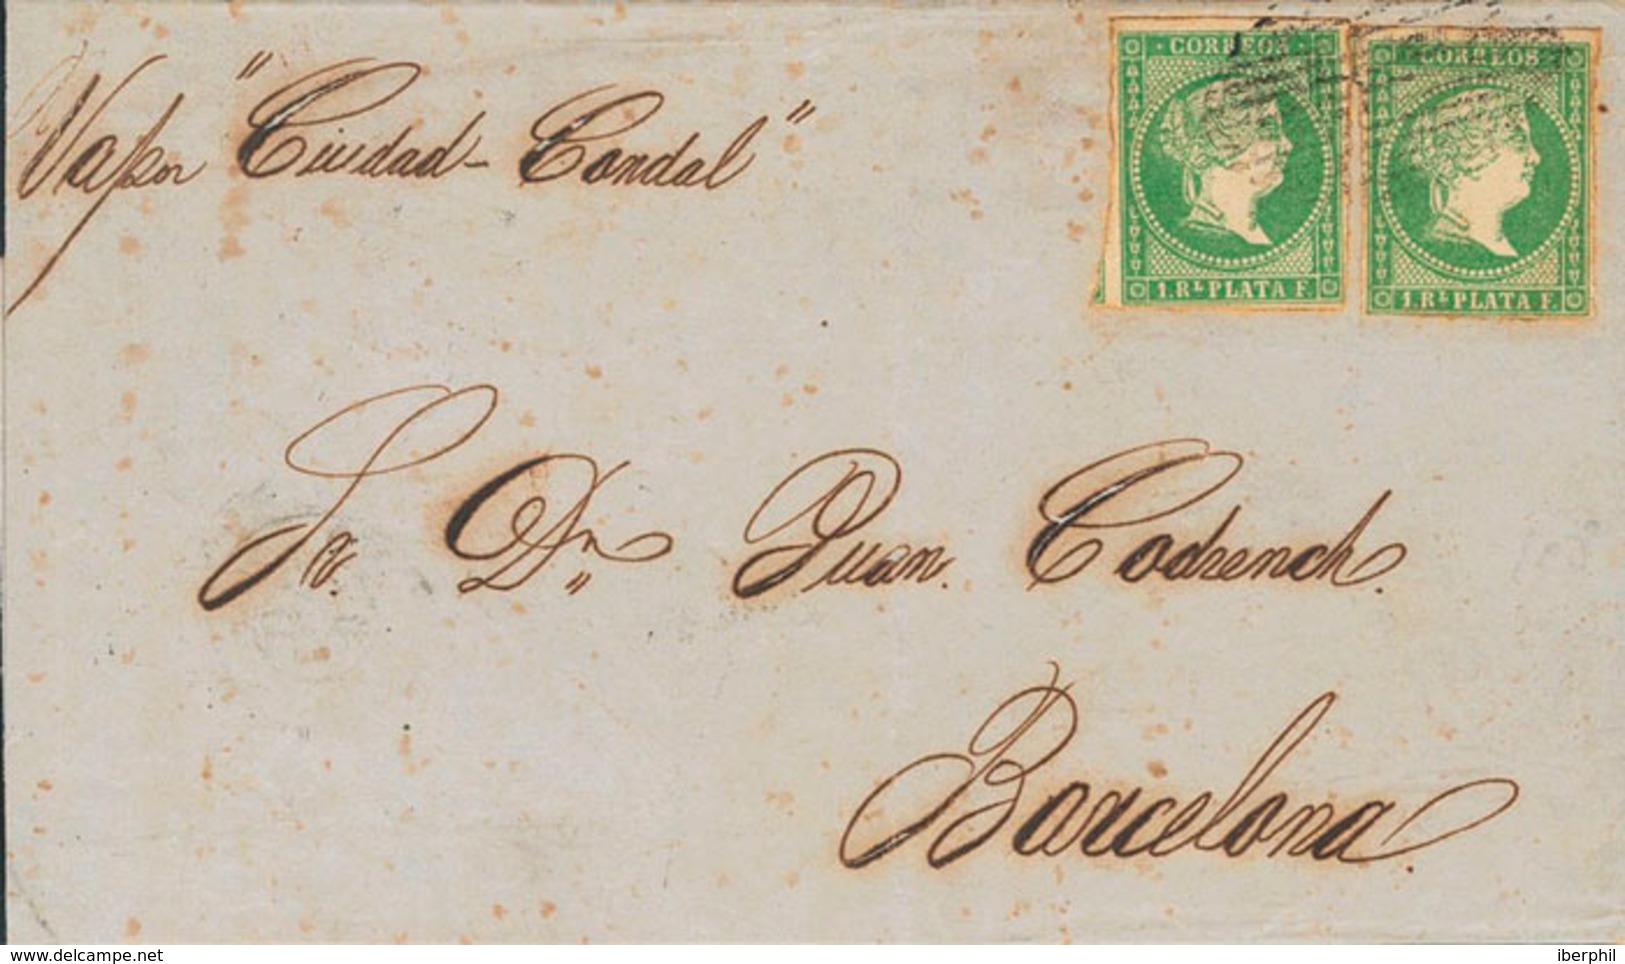 Vapor "Ciudad-Condal"
CORREOS
1. RL PLATA F.
CORREOS
1. RL PLATA F.
Sr. Dn. Juan Codrench.
Barcelona.
www.delcampe.net
iberphil